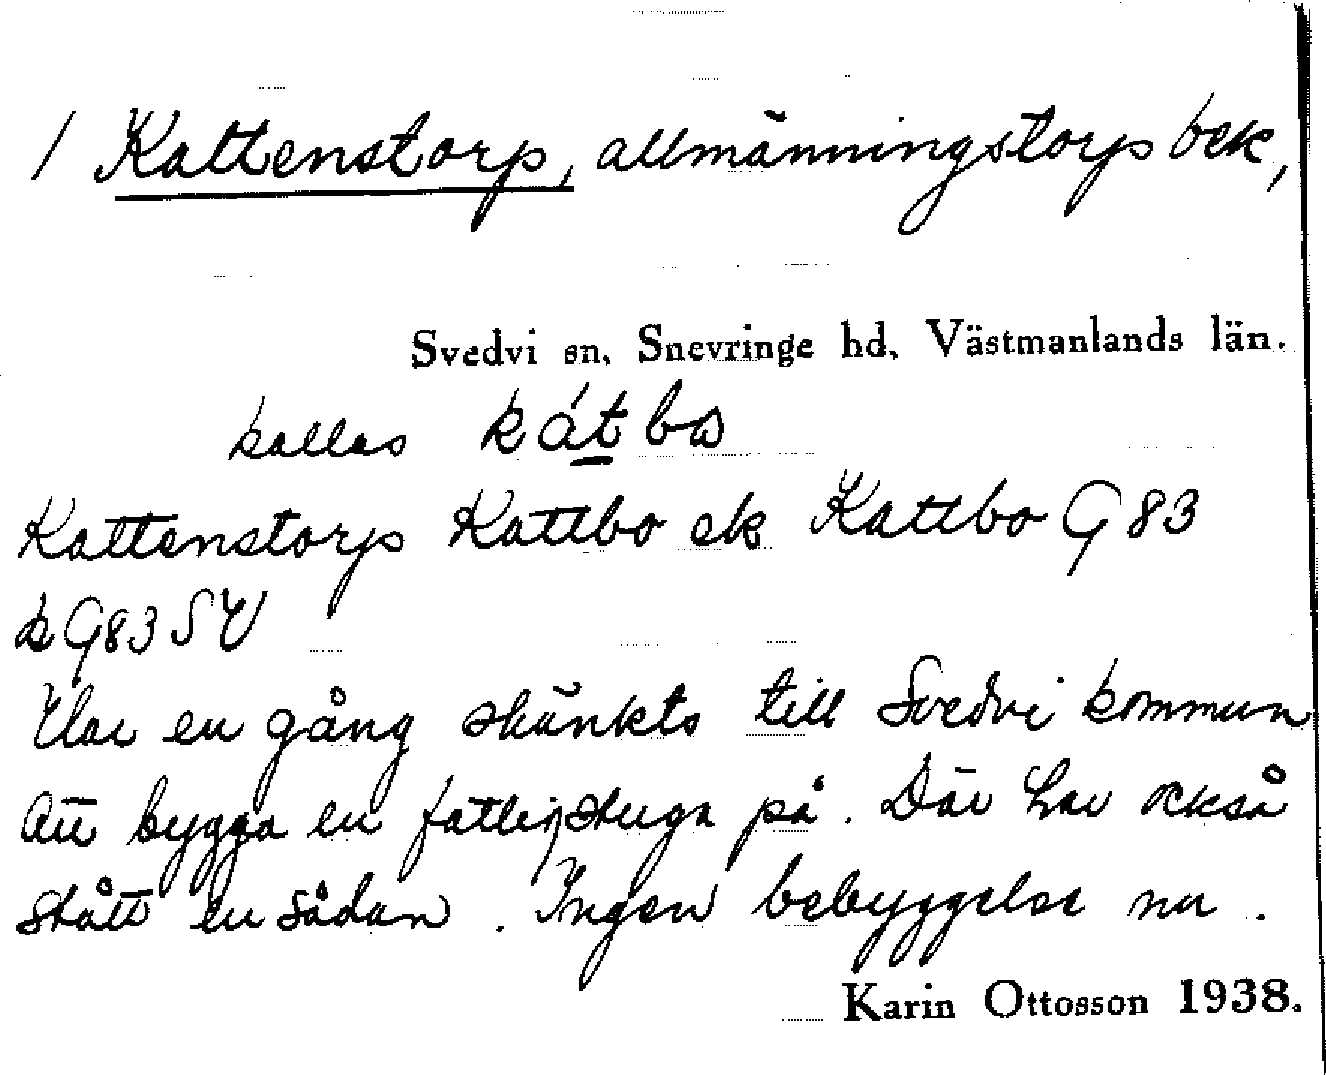 1 Kattenstorp, allmänningstorp bek,
Svedvi sn, Snevringe hd, Västmanlands län.
kallas kátbo
Kattenstorp Kattbo ek Kattbo G 83
k G83 SV
Har en gång skänkts till Svedvi kommun
att bygga en fattigstuga på. Där har också
stått en sådan. Ingen bebyggelse nu.
Karin Ottosson 1938.